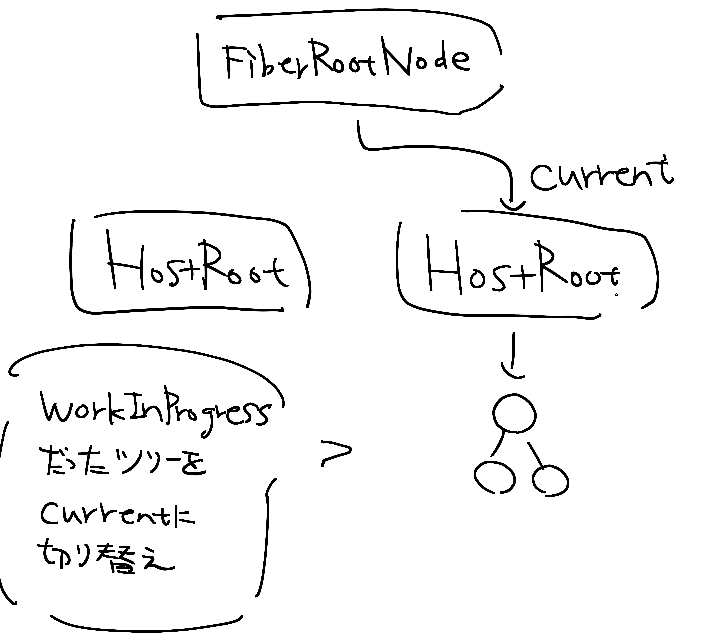 FiberRootNode
current
HostRoot
HostRoot
WorkInProgress
だったツリーを
currentに
切り替え
>